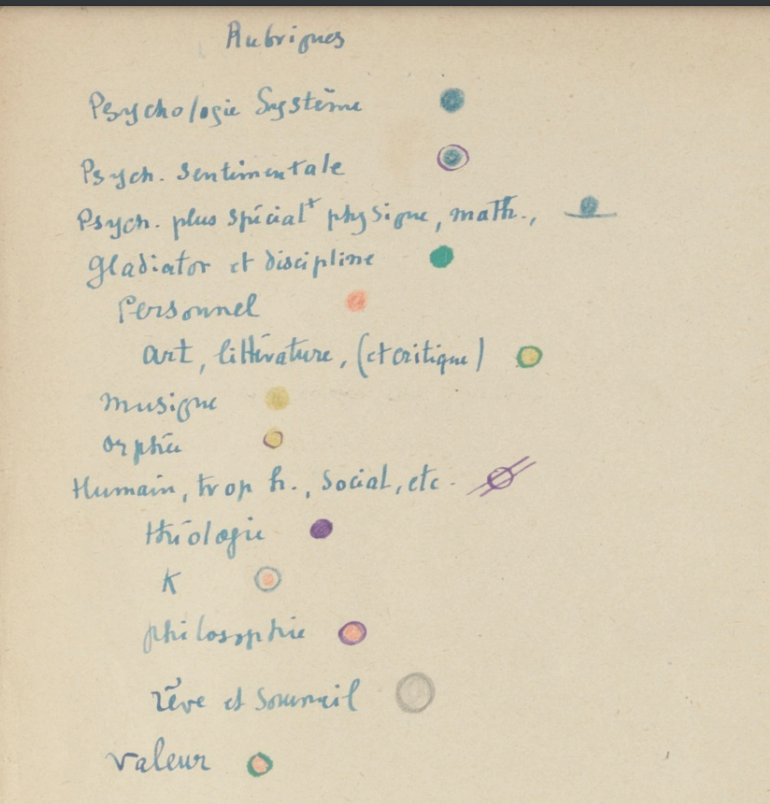 Rubriques
Psychologie Système
Psych. sentimentale
Psych. plus spécialt physique, math.,
Gladiator et discipline
Personnel
art, littérature, (et critique)
musique
orphée
Humain, trop h., social, etc.
théologie
K
philosophie
rêve et sommeil
valeur